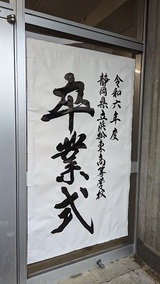 令和六年度
静岡県立浜松東高等学校
卒業式